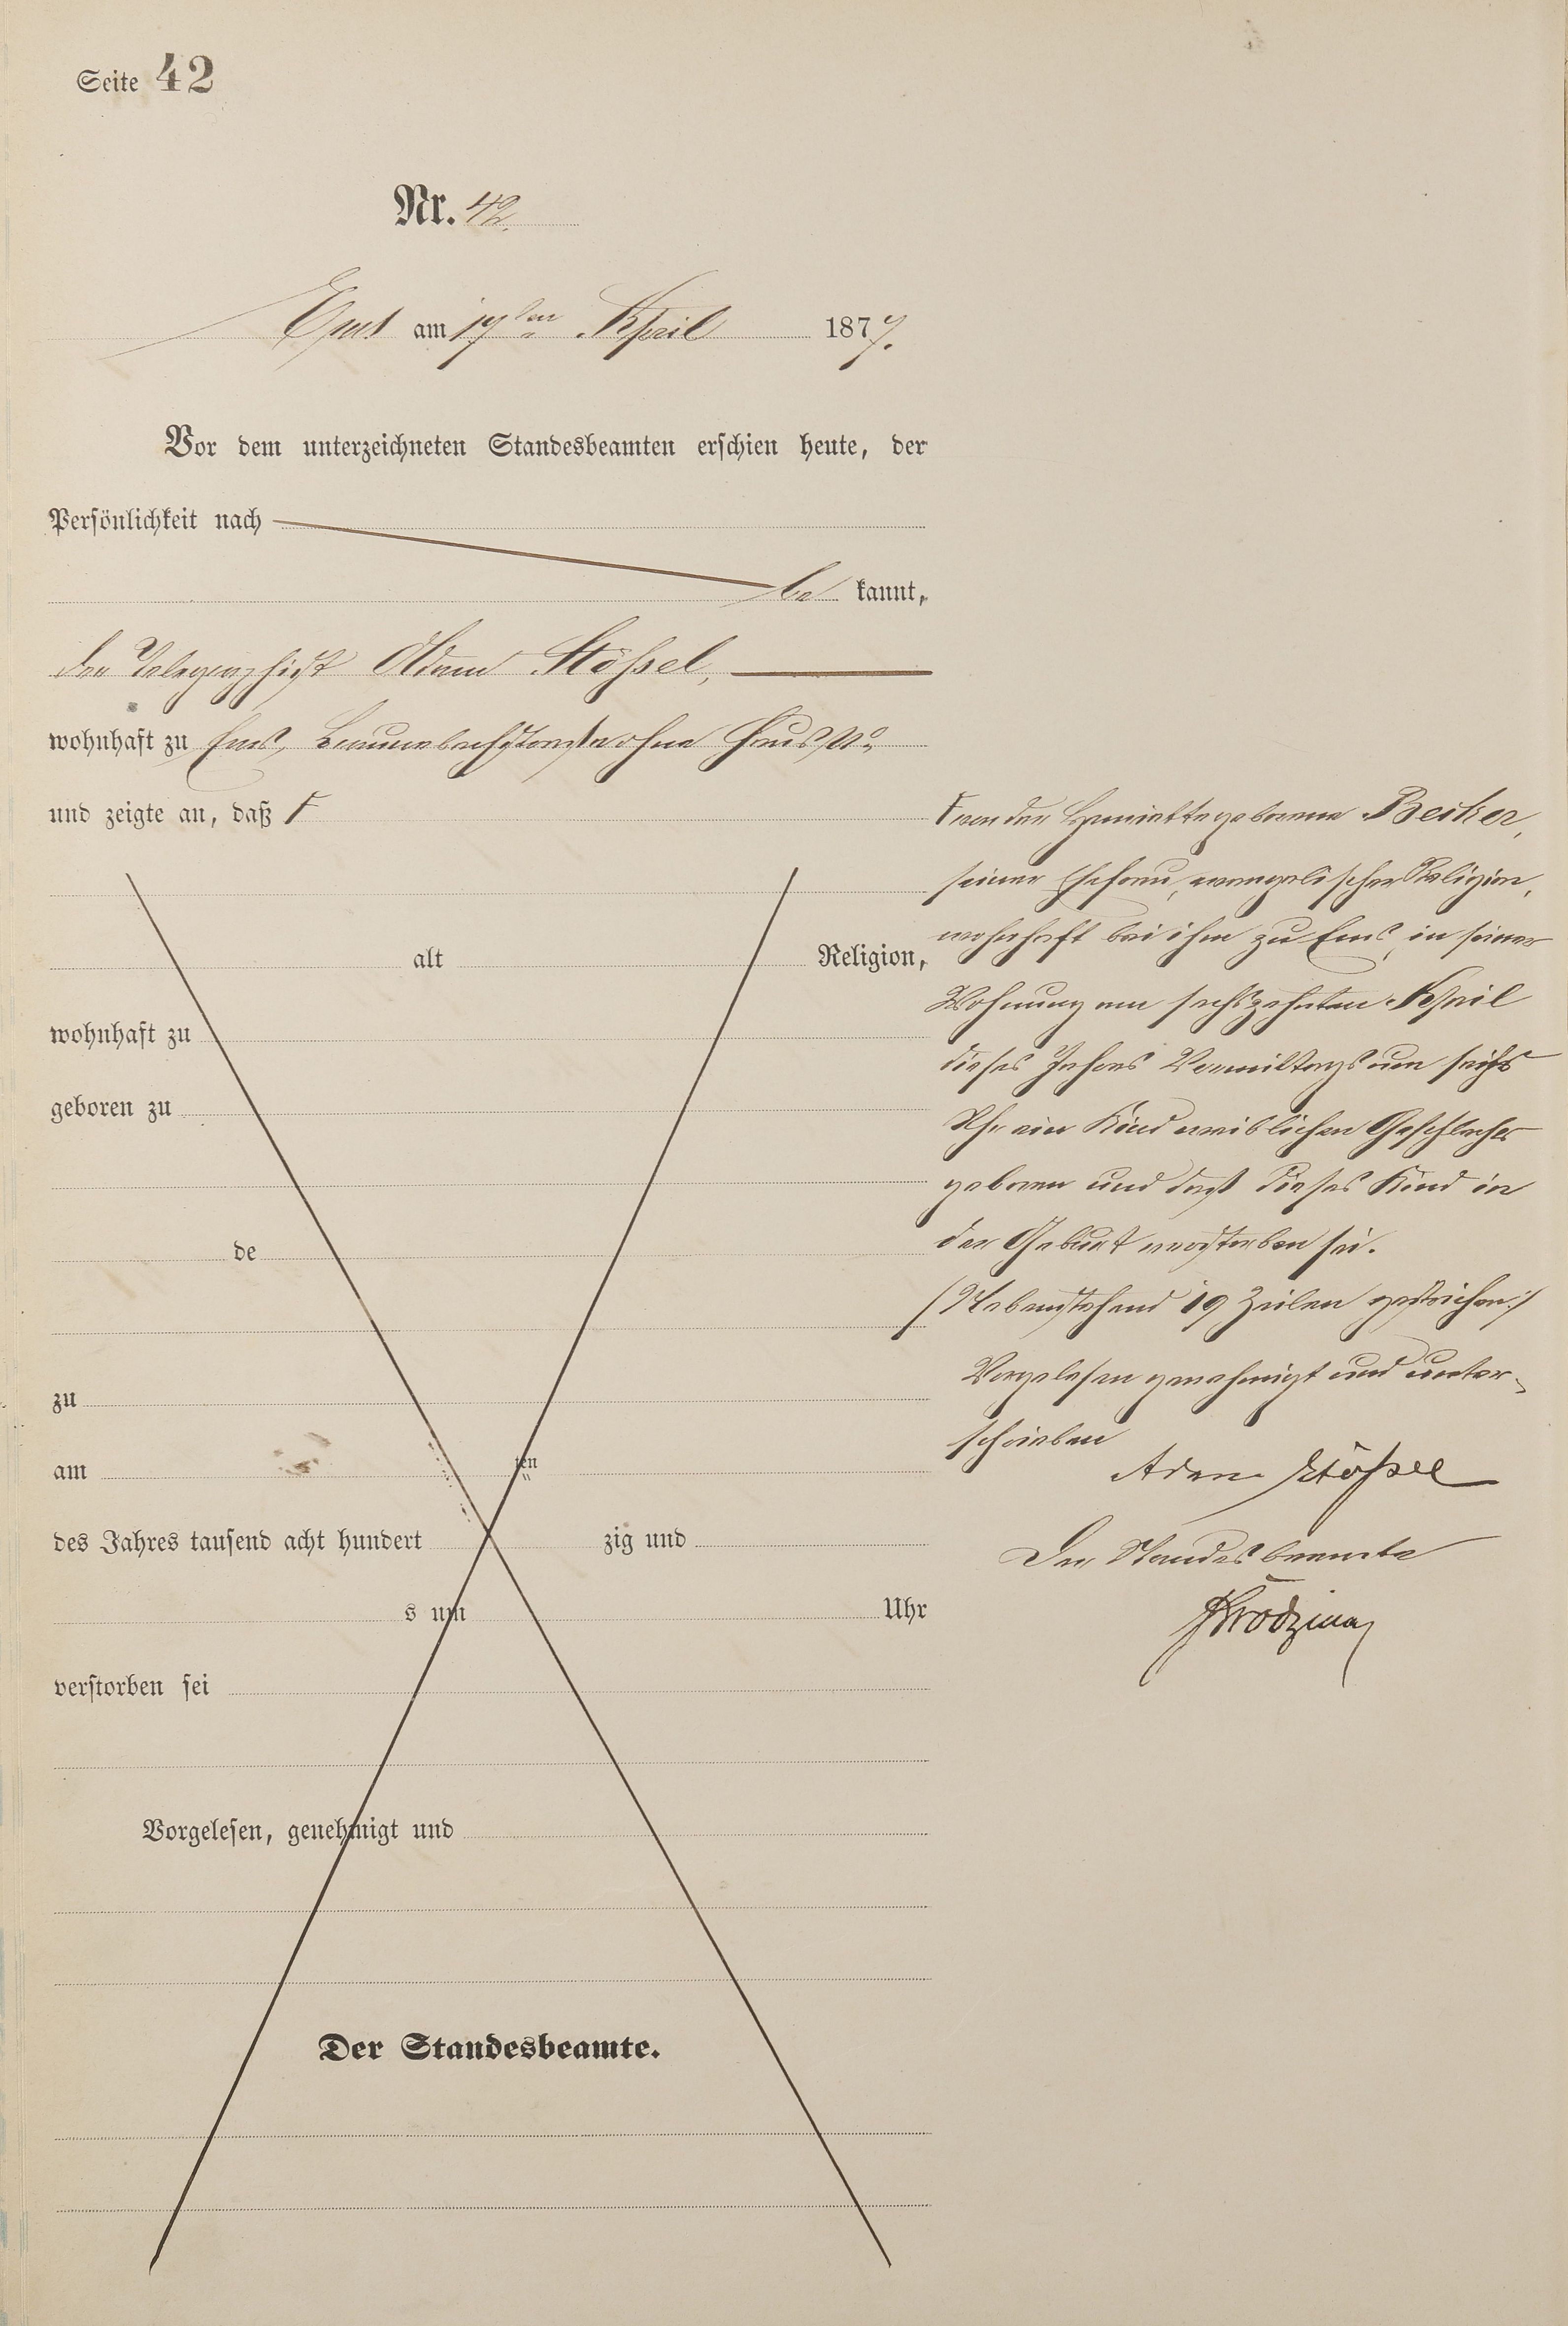 Seite 42
Nr. 42.
Ems am 17ten April 1877.
Vor dem unterzeichneten Standesbeamten erschien heute, der
Persönlichkeit nach
be kannt,
der Telegraphist Adam Stößel,
wohnhaft zu Ems, Braunebachstraße ohne Haus No
und zeigte an, daß Ϝ
alt Religion,
wohnhaft zu
geboren zu
de
zu
am ten
des Jahres tausend acht hundert zig und
s um Uhr
verstorben sei
Vorgelesen, genehmigt und
Der Standesbeamte.
Ϝ von der Henriette geborene Becker,
seiner Ehefrau, evangelischer Religion,
wohnhaft bei ihm zu Ems, in seiner
Wohnung am sechszehnten April
dieses Jahres Vormittags um sechs
Uhr ein Kind weiblichen Geschlechts
geboren und daß dieses Kind in
der Geburt verstorben sei.
/Nebenstehend 19 Zeilen gestrichen:/
Vorgelesen genehmigt und unter-
schrieben
Adam Stößel
Der Standesbeamte